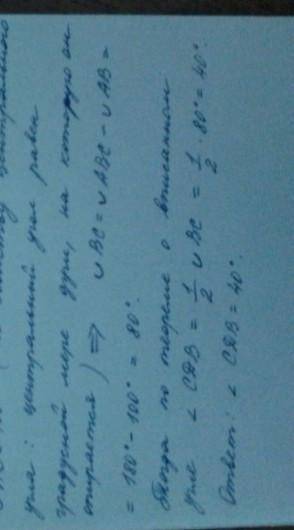 центрального
угла : центральный угол равен
градусной мере дуги, на которую он
опирается ) => ∪ BC = ∪ ABC - ∪ AB =
= 180° - 100° = 80°.
Тогда по теореме о вписанном
угле ∠ CAB = 1/2 ∪ BC = 1/2 · 80° = 40°.
Ответ: ∠ CAB = 40°.